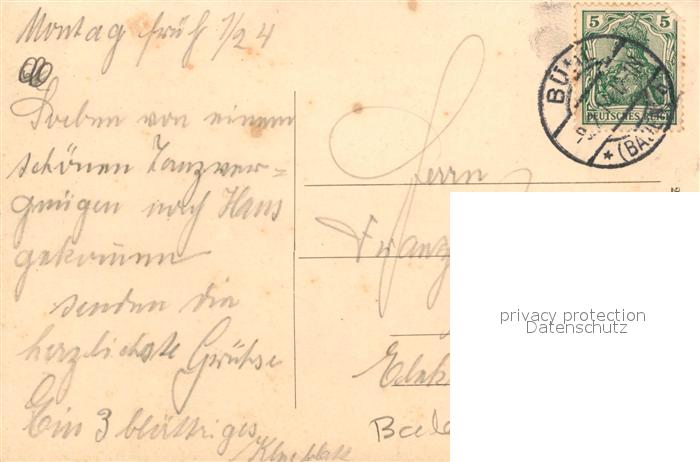 Montag früh 1/2 4
Soeben von einem
schönen Tanzver=
gnügen nach Haus
gekommen
senden die
herzlichste Grüße
Ein 3 blättriges
Kleeblatt
Herrn
Franz
Bade
5
DEUTSCHES REICH
BÜ
(BA
privacy protection
Datenschutz